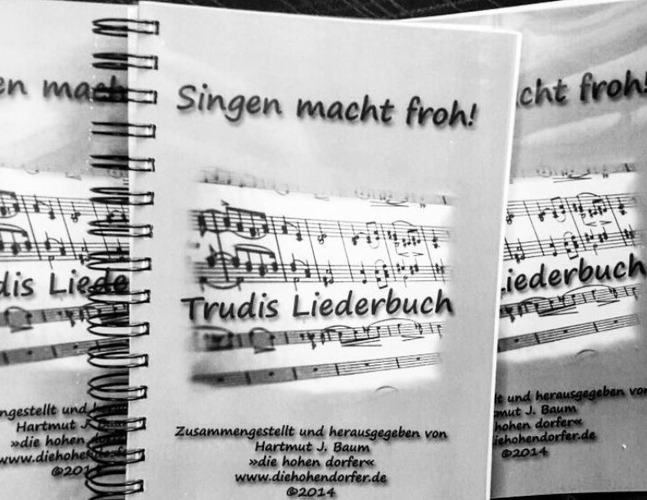 Singen macht froh!
Trudis Liederbuch
Zusammengestellt und herausgegeben von
Hartmut J. Baum
»die hohen dorfer«
www.diehohendorfer.de
©2014
en mach
dis Liede
ngestellt und
Hartmut J.
»die hohen
www.diehohe
©201
cht froh!
Liederbuch
lt und herausgegeben von
mut J. Baum
hohen dorfer«
iehohendorfer.de
©2014